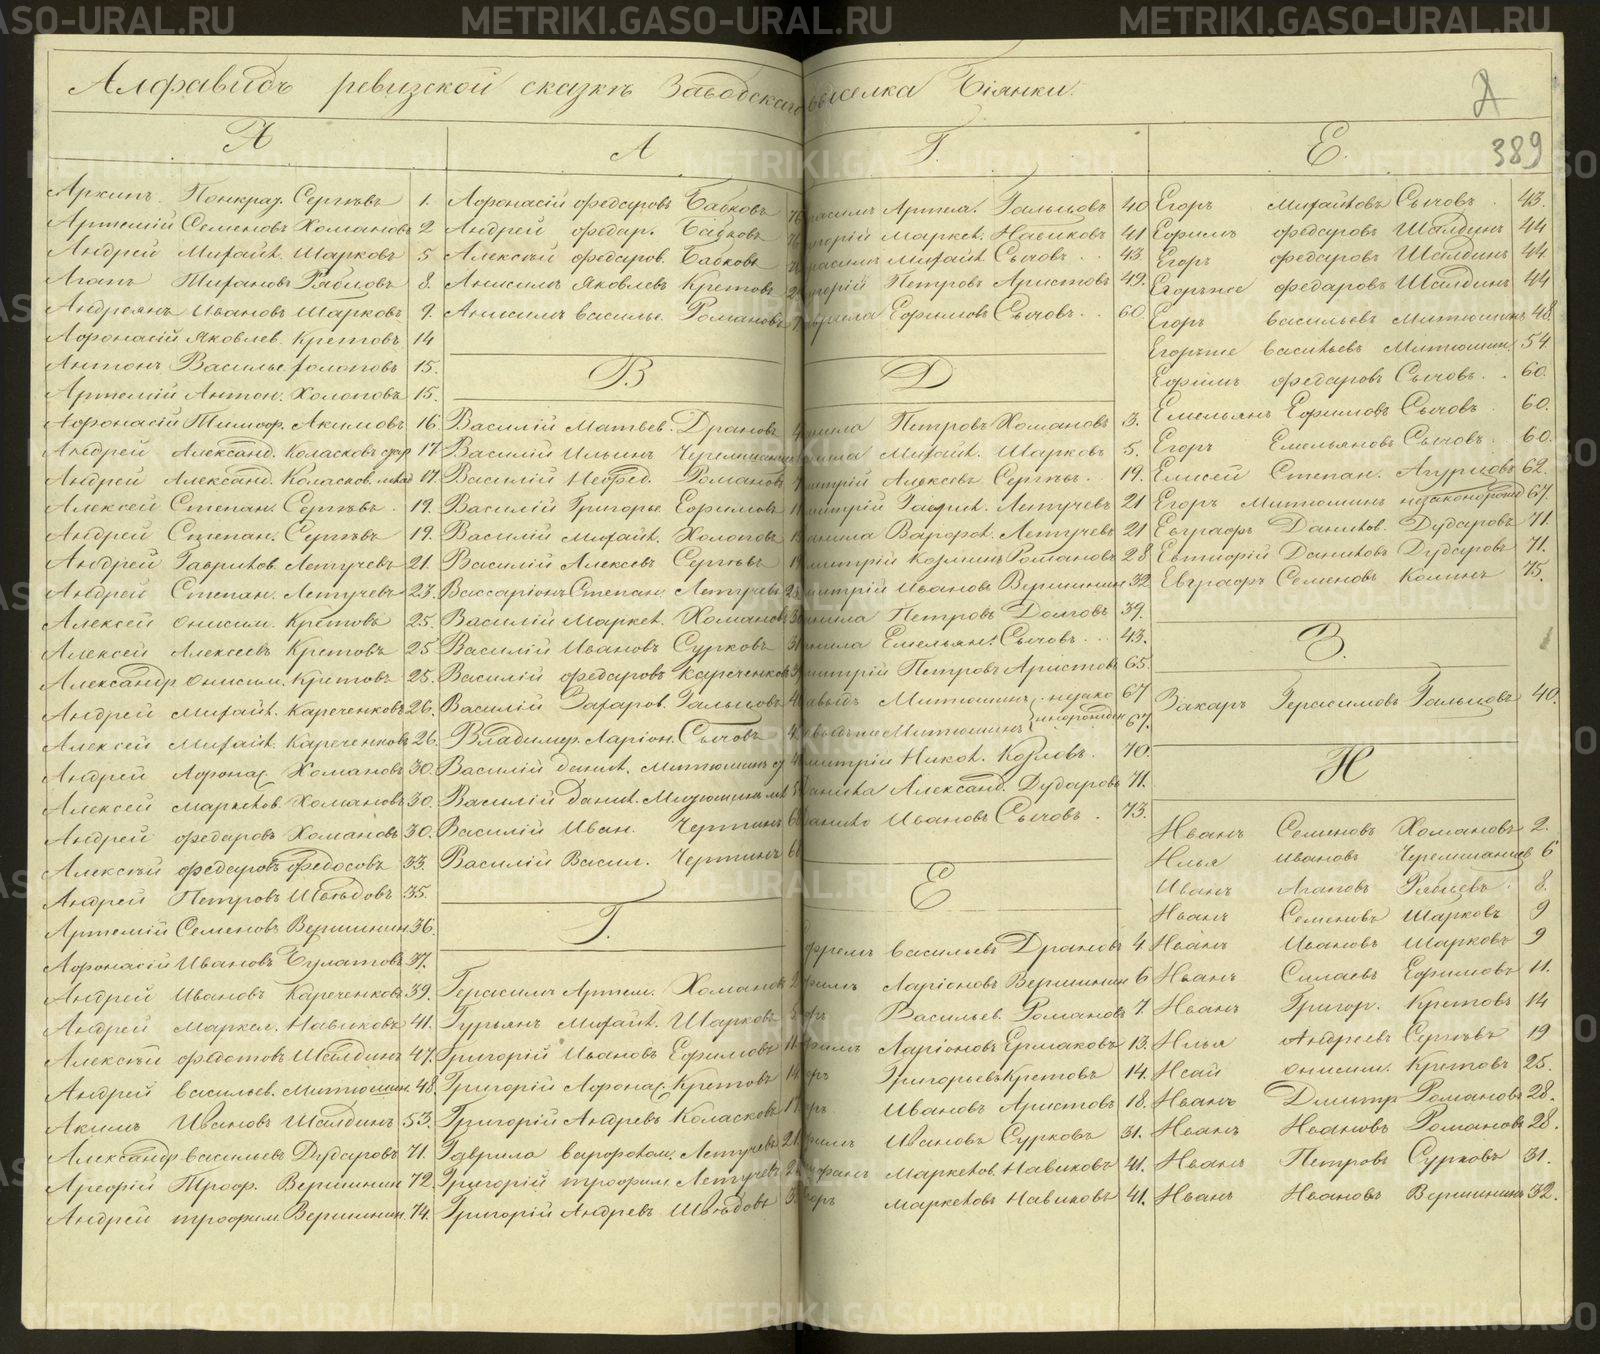 METRIKI.GASO-URAL.RU
Алфавидъ ревизской сказкѣ Заводскаго выселка Бiянки.
389
А
Архипъ Понкрат. Сергѣевъ 1.
Артемiй Семеновъ Хомановъ 2
Андрей Михайл. Шарковъ 5
Агапъ 8.
Андреянъ Ивановъ Шарковъ 9.
Афонасiй Яковлев. Кретовъ 14
Антонъ Василье. Холоповъ 15.
Артемiй Антон. Холоповъ 15.
Афонасiй Тимоф. Акимовъ 16
Андрей Александ. Коласковъ 17
Андрей Александ. Коласков. 17.
Алексей Степан. Сергѣевъ 19.
Андрей Степан. Сергѣевъ 19.
Андрей Гаврилов. Летучевъ 21.
Андрей Степан. Летучевъ 23.
Алексей Онисим. Кретовъ 25.
Алексей Алексеевъ Кретовъ 25
Александръ Онисим. Кретовъ 25.
Андрей Михайл. Кареченковъ 26.
Алексей Михайл. Кареченковъ 26.
Андрей Афонас. Хомановъ 30.
Алексей Маркелов. Хомановъ 30.
Андрей Федоровъ Хомановъ 30.
Алексѣй Федоровъ Федосовъ 33.
Андрей Петровъ 35.
Артемiй Семеновъ Вершининъ 36.
Афонасiй Ивановъ Булатовъ 37.
Андрей Ивановъ Кареченковъ 39.
Андрей Маркел. Навиковъ 41.
Алексѣй Федотовъ Шалдинъ 47.
Андрей Васильев. Митюшин. 48.
Акимъ Ивановъ Шалдинъ 53.
Александръ Васильевъ Дударовъ 71.
Арефiй Трофим. Вершинин 72
Андрей Трофим. Вершинин. 74.
А
Афонасiй Федоровъ Бабковъ
Андрей Федор. Бабковъ
Алексѣй Федоров. Бабковъ
Анисимъ Яковлевъ Кретовъ
Анисимъ Василье. Романовъ
В
Василiй Матвев. Драновъ
Василiй Ильинъ
Василiй Нефед. Романовъ
Василiй Григорье. Ефимовъ
Василiй Михайл. Холоповъ
Василiй Алексевъ Сергѣевъ
Виссарiонъ Степан. Летучевъ
Василiй Маркел. Хомановъ
Василiй Ивановъ Сурковъ
Василiй Федоровъ Кареченковъ
Василiй Захаров. Гальцовъ
Владимер. Ларiон. Сычовъ
Василiй Данил. Митюшинъ
Василiй Данил. Митюшинъ
Василiй Иван. Чертинъ
Василiй Васил. Чертинъ
Г.
Герасимъ Артем. Хоманов
Гурьянъ Михайл. Шарковъ
Григорiй Ивановъ Ефимовъ
Григорiй Афонас. Кретовъ
Григорiй Андревъ Коласковъ
Гаврило Варфолом. Летучевъ
Григорiй Трофим. Летучевъ
Григорiй Андревъ
Г.
Артем. Гальцовъ 40
Маркел. Навиковъ 41
Михайл. Сычовъ 43
Петровъ Аристовъ 49.
Ефимовъ Сычовъ 60
Д
Петровъ Хомановъ 3.
Михайл. Шарковъ 5.
Алексевъ Сергѣевъ 19.
Гаврил. Летучевъ 21
Варфол. Летучевъ 21
Романовъ 28
Ивановъ Вершинин 32
Петровъ Долговъ 39.
Емельян. Сычовъ 43.
Петровъ Аристовъ 65.
Митюшинъ 67
Митюшинъ 67.
Никол. Козловъ. 70.
Александ. Дударовъ 71.
Ивановъ Сычовъ 73.
Е
Васильевъ Драновъ 4.
Ларiоновъ Вершинин 6
Васильев. Романовъ 7.
Ларiоновъ Ермаковъ 13.
Григорьевъ Кретовъ 14.
Ивановъ Аристовъ 18.
Ивановъ Сурковъ 31.
Маркелов. Навиковъ 41.
Маркеловъ Навиковъ 41.
Е.
Егоръ Михайловъ Сычовъ 43.
Ефимъ Федоровъ Шалдинъ 44
Егоръ Федоровъ Шалдинъ 44
Егоръже Федоровъ Шалдинъ 44
Егоръ Васильевъ Митюшинъ 48
Егоръже Васильевъ Митюшин. 54
Ефимъ Федоровъ Сычовъ. 60.
Емельянъ Ефимовъ Сычовъ 60.
Егоръ Емельяновъ Сычовъ. 60.
Елисей Степан. 62.
Егоръ Митюшинъ незаконорожд 67.
Евграфъ Данилов. Дударовъ 71.
Евтифiй Даниловъ Дударовъ 71.
Евграфъ Семеновъ Колинъ 75.
З.
Захаръ Герасимовъ Гальцовъ 40.
И
Иванъ Семеновъ Хомановъ 2.
Илья Ивановъ 6
Иванъ Агаповъ 8.
Иванъ Семеновъ Шарковъ 9
Иванъ Ивановъ Шарковъ 9
Иванъ Силаевъ Ефимовъ 11.
Иванъ Григор. Кретовъ 14
Илья Андреевъ Сергѣевъ 19
Исай Онисим. Кретовъ 25.
Иванъ Дмитр. Романовъ 28.
Иванъ Ивановъ Романовъ 28.
Иванъ Петровъ Сурковъ 31.
Иванъ Ивановъ Вершининъ 32.